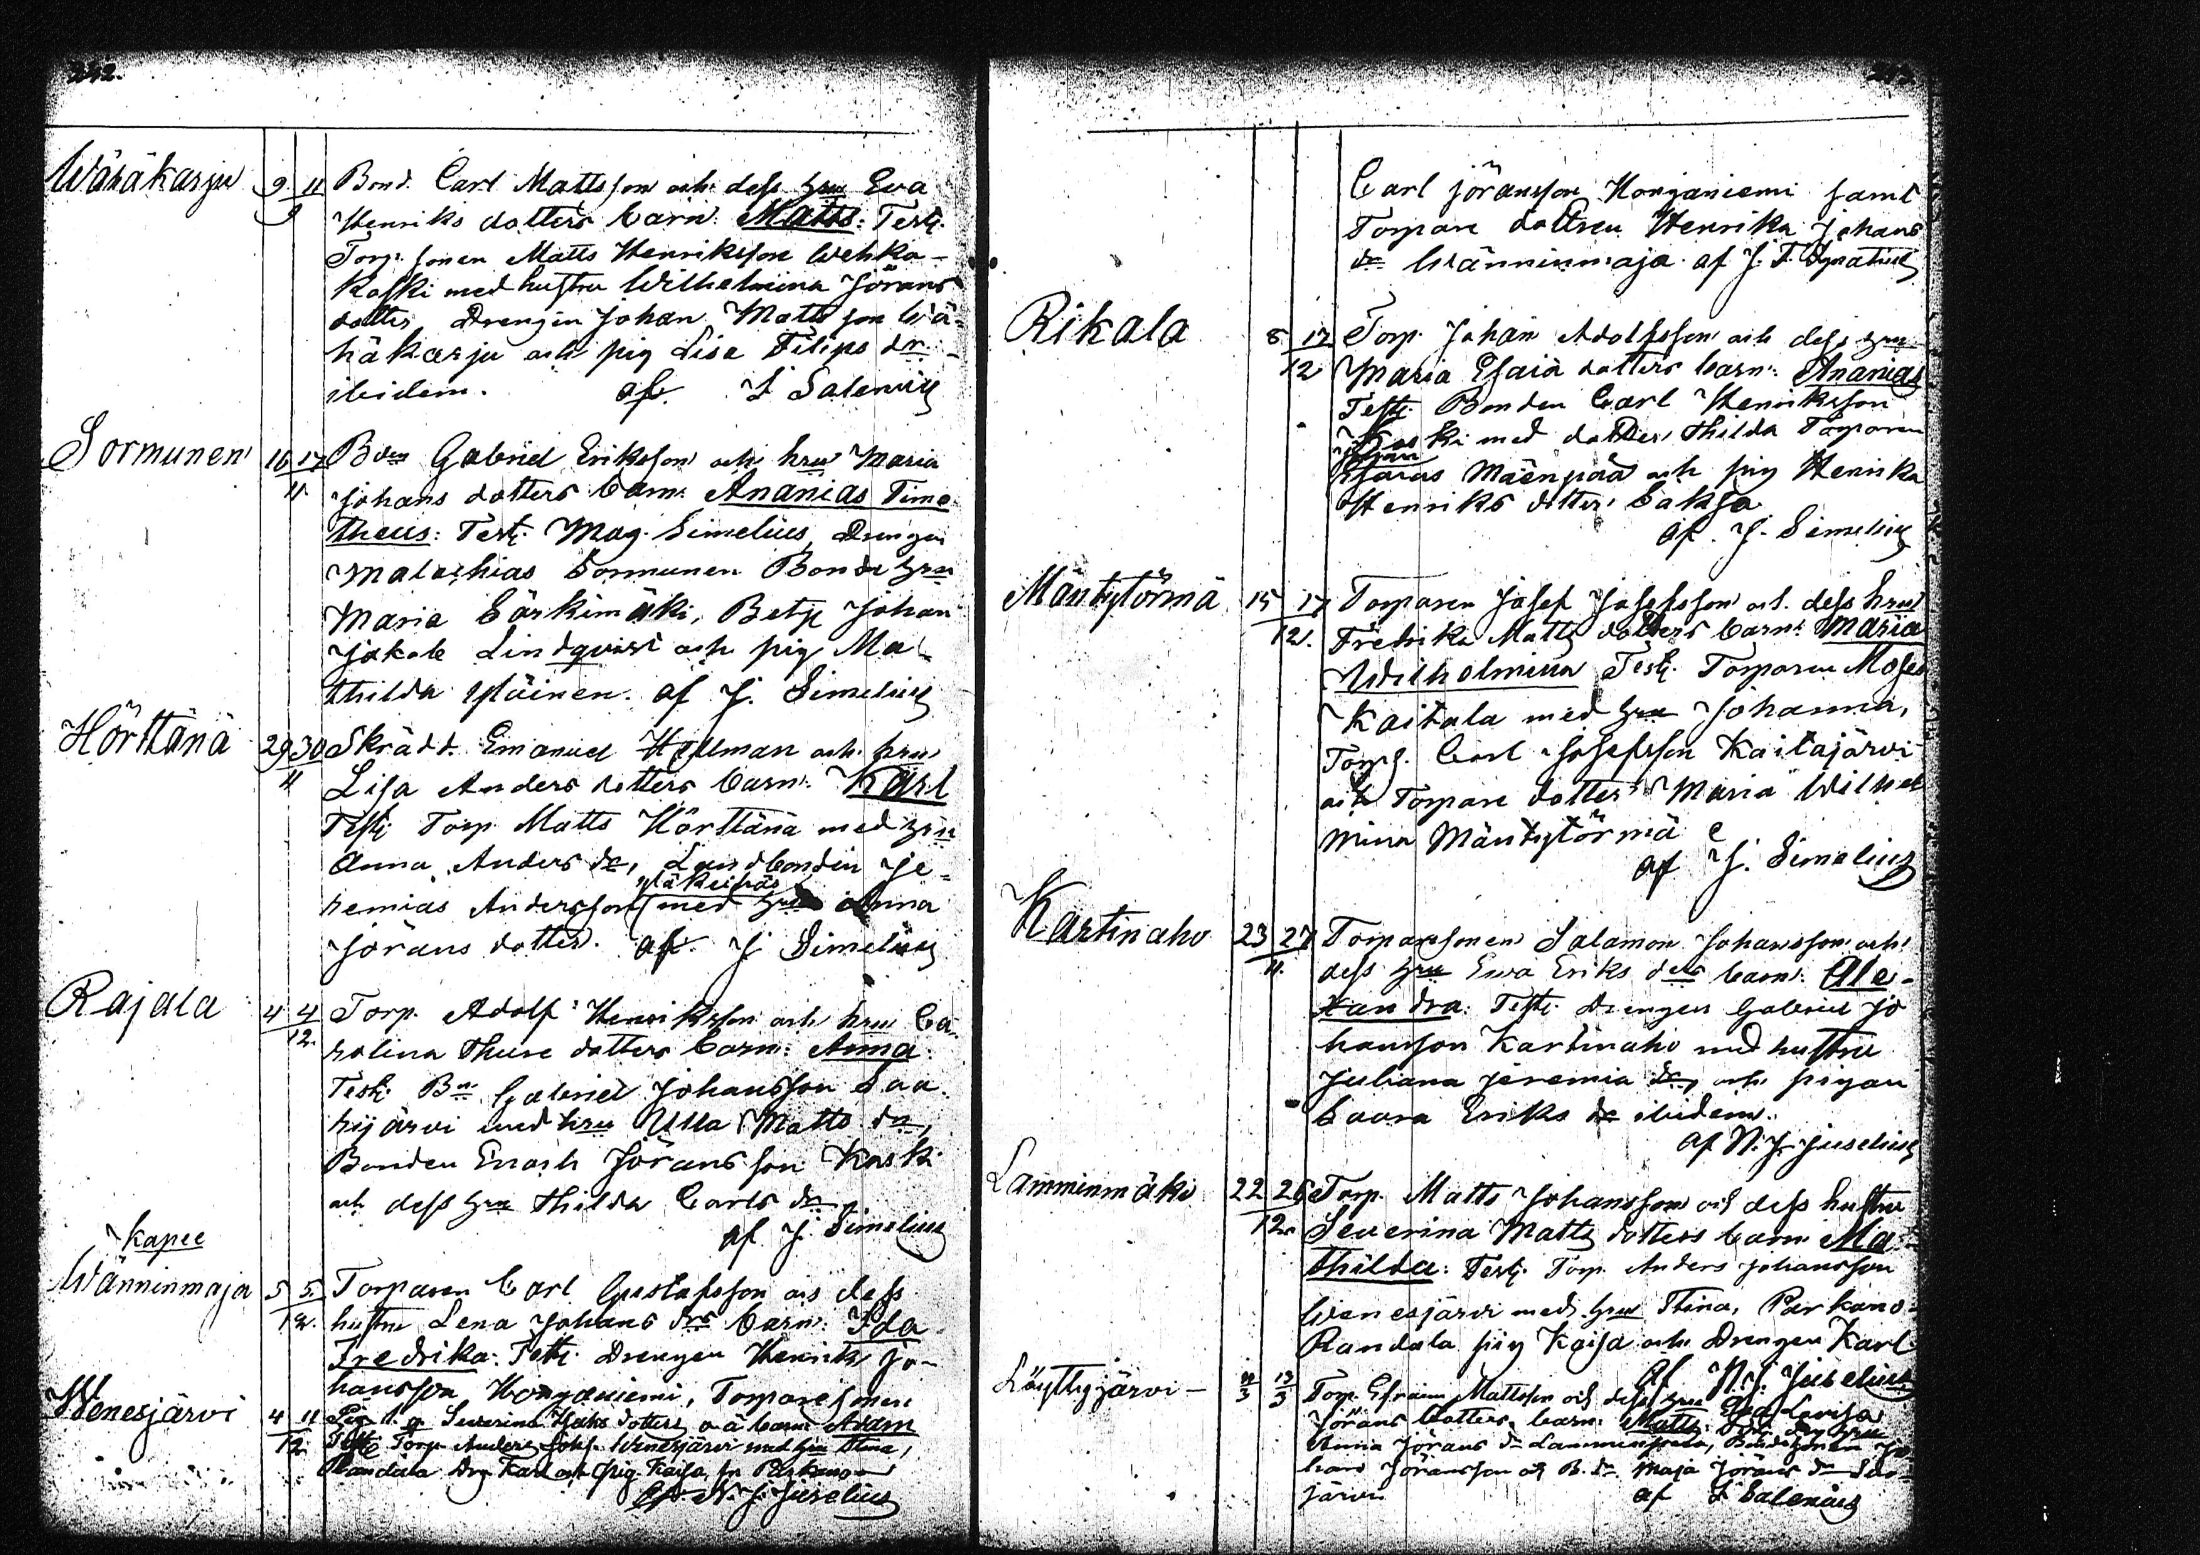 242.
Wähäkarju 9 11/9 Bond. Carl Mattsson och dess hru Eva
Henriks dotters barn: Matts: Test:
Torp. sonen Matts Henriksson Wehka-
koski med hustru Wilhelmina Jörans
dotter, Drengen Johan Mattsson Wä-
häkarju och pig Lise Filips dr
ibidem. af
Sormunen 16 17/11 Bden Gabriel Eriksson och hru Maria
Johans dotters barn: Ananias Timo-
theus: Test: Mag. Simelius, Drengen
Malachias Sormunen Bonde hru
Maria Särkimäki, Betj. Johan
Jakob Lindqvist och pig Ma-
thilda Yläinen. af J. Simelius
Hörttänä 29 30/11 Skrädd. Emanuel Hellman och hru
Lisa Anders dotters barn: Karl
Test: Torp Matts Hörttänä med hru
Anna Anders dr, Landbonden Je-
remias Andersson med hru Anna
Jörans dotter. af J Simelius
Rajala 4 4/12. Torp. Adolf Henriksson och hru Ca-
rolina Thure dotters barn: Anna:
Test: Bn Gabriel Johansson Saa
rijärvi med hru Ulla Matts dr,
Bonden Enoch Jöransson Koski
och dess hru Thilda Carls dr
af J. Simelius
Kapee
Wänninmaja 5 5./12. Torparen Carl Gustafsson och dess
hustru Lena Johans drs barn: Ida
Fredrika: Test: Drengen Henrik Jo-
hansson Honganiemi, Torparesonen
Wenesjärvi 4 11/12 Pig Severina dotters o ä barn Adam
Test: Torp. Anders Johs. Wenesjärvi med hru Stina,
Randala Drg Karl och pig. Kaisa fr Parkano
af N. J. Juselius
Carl Jöransson Honganiemi samt
Torpare dottren Henrika Johans
dr Wänninmaja. af J. F. Ignatius
Rikala 8 17/12 Torp. Johan Adolfsson och dess hru
Maria Esaia dotters barn: Ananias
Test: Bonden Carl Henriksson
Koski med dotter Thilda Torparen
Mäenpää och pig Henrika
Henriks dotter Saksa
af. J. Simelius
Mäntytörmä 15 17/12. Torparen Josef Josefsson och dess hru
Fredrika Matts dotters barn: Maria
Wilhelmina Test: Torparen Moses
Kaitala med hru Johanna,
Torps. Carl Josefsson Kaitajärvi
och Torpare dotter Maria Wilhel
mina Mäntytörmä
af J. Simelius
Kartinaho 23 27/11. Torparesonen Salamon Johansson och
dess hru Ewa Eriks drs barn: Ale-
xandra: Test: Drengen Gabriel Jo
hansson Kartinaho med hustru
Juliana Jeremia dr, och pigan
Saara Eriks dr ibidem.
af N. J. Juselius
Lamminmäki 22 26/12. Torp. Matts Johansson och dess hustru
Severina Matts dotters barn Ma-
thilda: Test: Torp. Anders Johansson
Wenesjärvi med hru Stina, Parkano-
Randala pig Kaisa och Drengen Karl
af N. J. Juselius
Löyttyjärvi - 11/3 13/3 Torp. Efraim Mattsson och dess hru Eva Lovisa
Jörans dotters barn: Matts:
Anna Jörans dr
hans Jöransson och B. dr Maja Jörans dr
järvi af